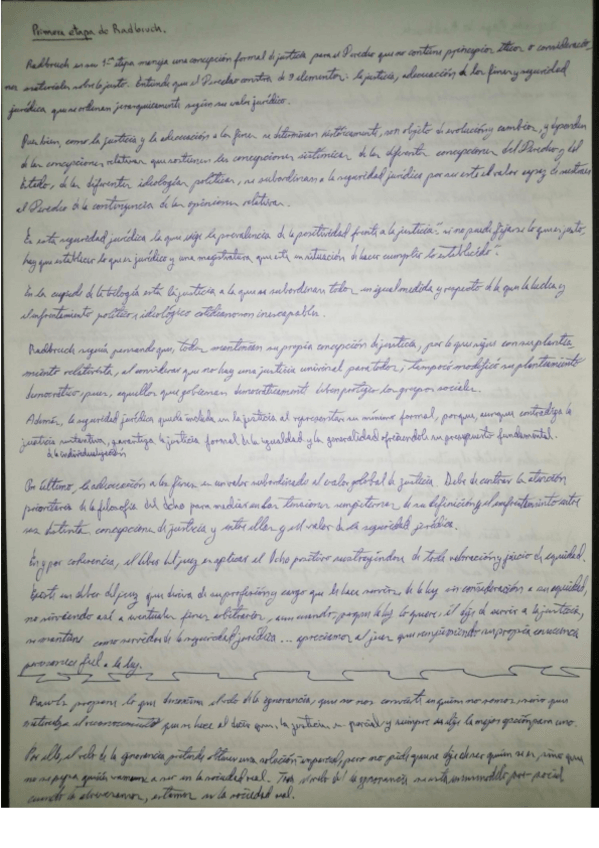 Primera etapa de Radbruch.
Radbruch en su 1ª etapa maneja una concepción formal de justicia para el Derecho que no contiene principios éticos o consideracio-
nes materiales sobre lo justo. Entiende que el Derecho consta de 3 elementos: la justicia, adecuación a los fines y seguridad
jurídica que se ordenan jerárquicamente según su valor jurídico.
Pues bien, como la justicia y la adecuación a los fines se determinan históricamente, son objeto de evolución y cambios, y dependen
de las concepciones relativas que sostienen las concepciones sistémicas de las diferentes concepciones del Derecho y del
Estado, de las diferentes ideologías políticas, se subordinan a la seguridad jurídica por ser este el valor capaz de sustraer
al Derecho de la contingencia de las opiniones relativas.
Es esta seguridad jurídica la que exige la prevalencia de la positividad frente a la justicia "si no puede fijarse lo que es justo,
hay que establecer lo que es jurídico y una magistratura que esté en situación de hacer cumplir lo establecido".
En la cúspide de la trilogía está la justicia a la que se subordinan todos en igual medida y respecto de la que la lucha y
el enfrentamiento político e ideológico cotidiano son inescapables.
Radbruch seguía pensando que, todos mantienen su propia concepción de justicia, por lo que sigue con su plantea-
miento relativista, al considerar que no hay una justicia universal para todos; tampoco modificó su planteamiento
democrático pues, aquellos que gobiernan democráticamente deben proteger los grupos sociales.
Además, la seguridad jurídica queda incluida en la justicia al representar su mínimo formal, porque, aunque contradiga la
justicia sustantiva, garantiza la justicia formal de la igualdad y la generalidad ofreciendole su presupuesto fundamental.
de la individualización
Por último, la adecuación a los fines es un valor subordinado al valor global de justicia. Debe de centrar la atención
prioritaria de la filosofía del Dcho para mediar en las tensiones sempiternas de su definición y el enfrentamiento entre
las distintas concepciones de justicia y entre ellas y el valor de la seguridad jurídica.
Es y por coherencia, el deber del juez es aplicar el Dcho positivo sustrayéndose de toda valoración y juicio de equidad.
Existe un deber del juez que deriva de su profesión y cargo que le hace servirse de la ley sin consideración a su equidad,
no sirviendo así a eventuales fines arbitrarios, aun cuando, porque la ley lo quiere, él deje de servir a la justicia,
se mantiene como servidor de la seguridad jurídica ... apreciamos al juez que su propia conciencia
permanece fiel a la ley.
Rawls propone lo que denomina el velo de la ignorancia, que no nos convierte en quien no somos, sino que
el que se hace al decir que, la justicia es parcial y siempre se elige la mejor opción para uno.
Por ello, el velo de la ignorancia pretende obtener una solución imparcial, pero no pide que se deje de ser quien se es, sino que
no se sepa quién vamos a ser en la sociedad real. Tras el velo de la ignorancia se está en un modelo pre-social,
cuando lo atravesamos, estamos en la sociedad real.